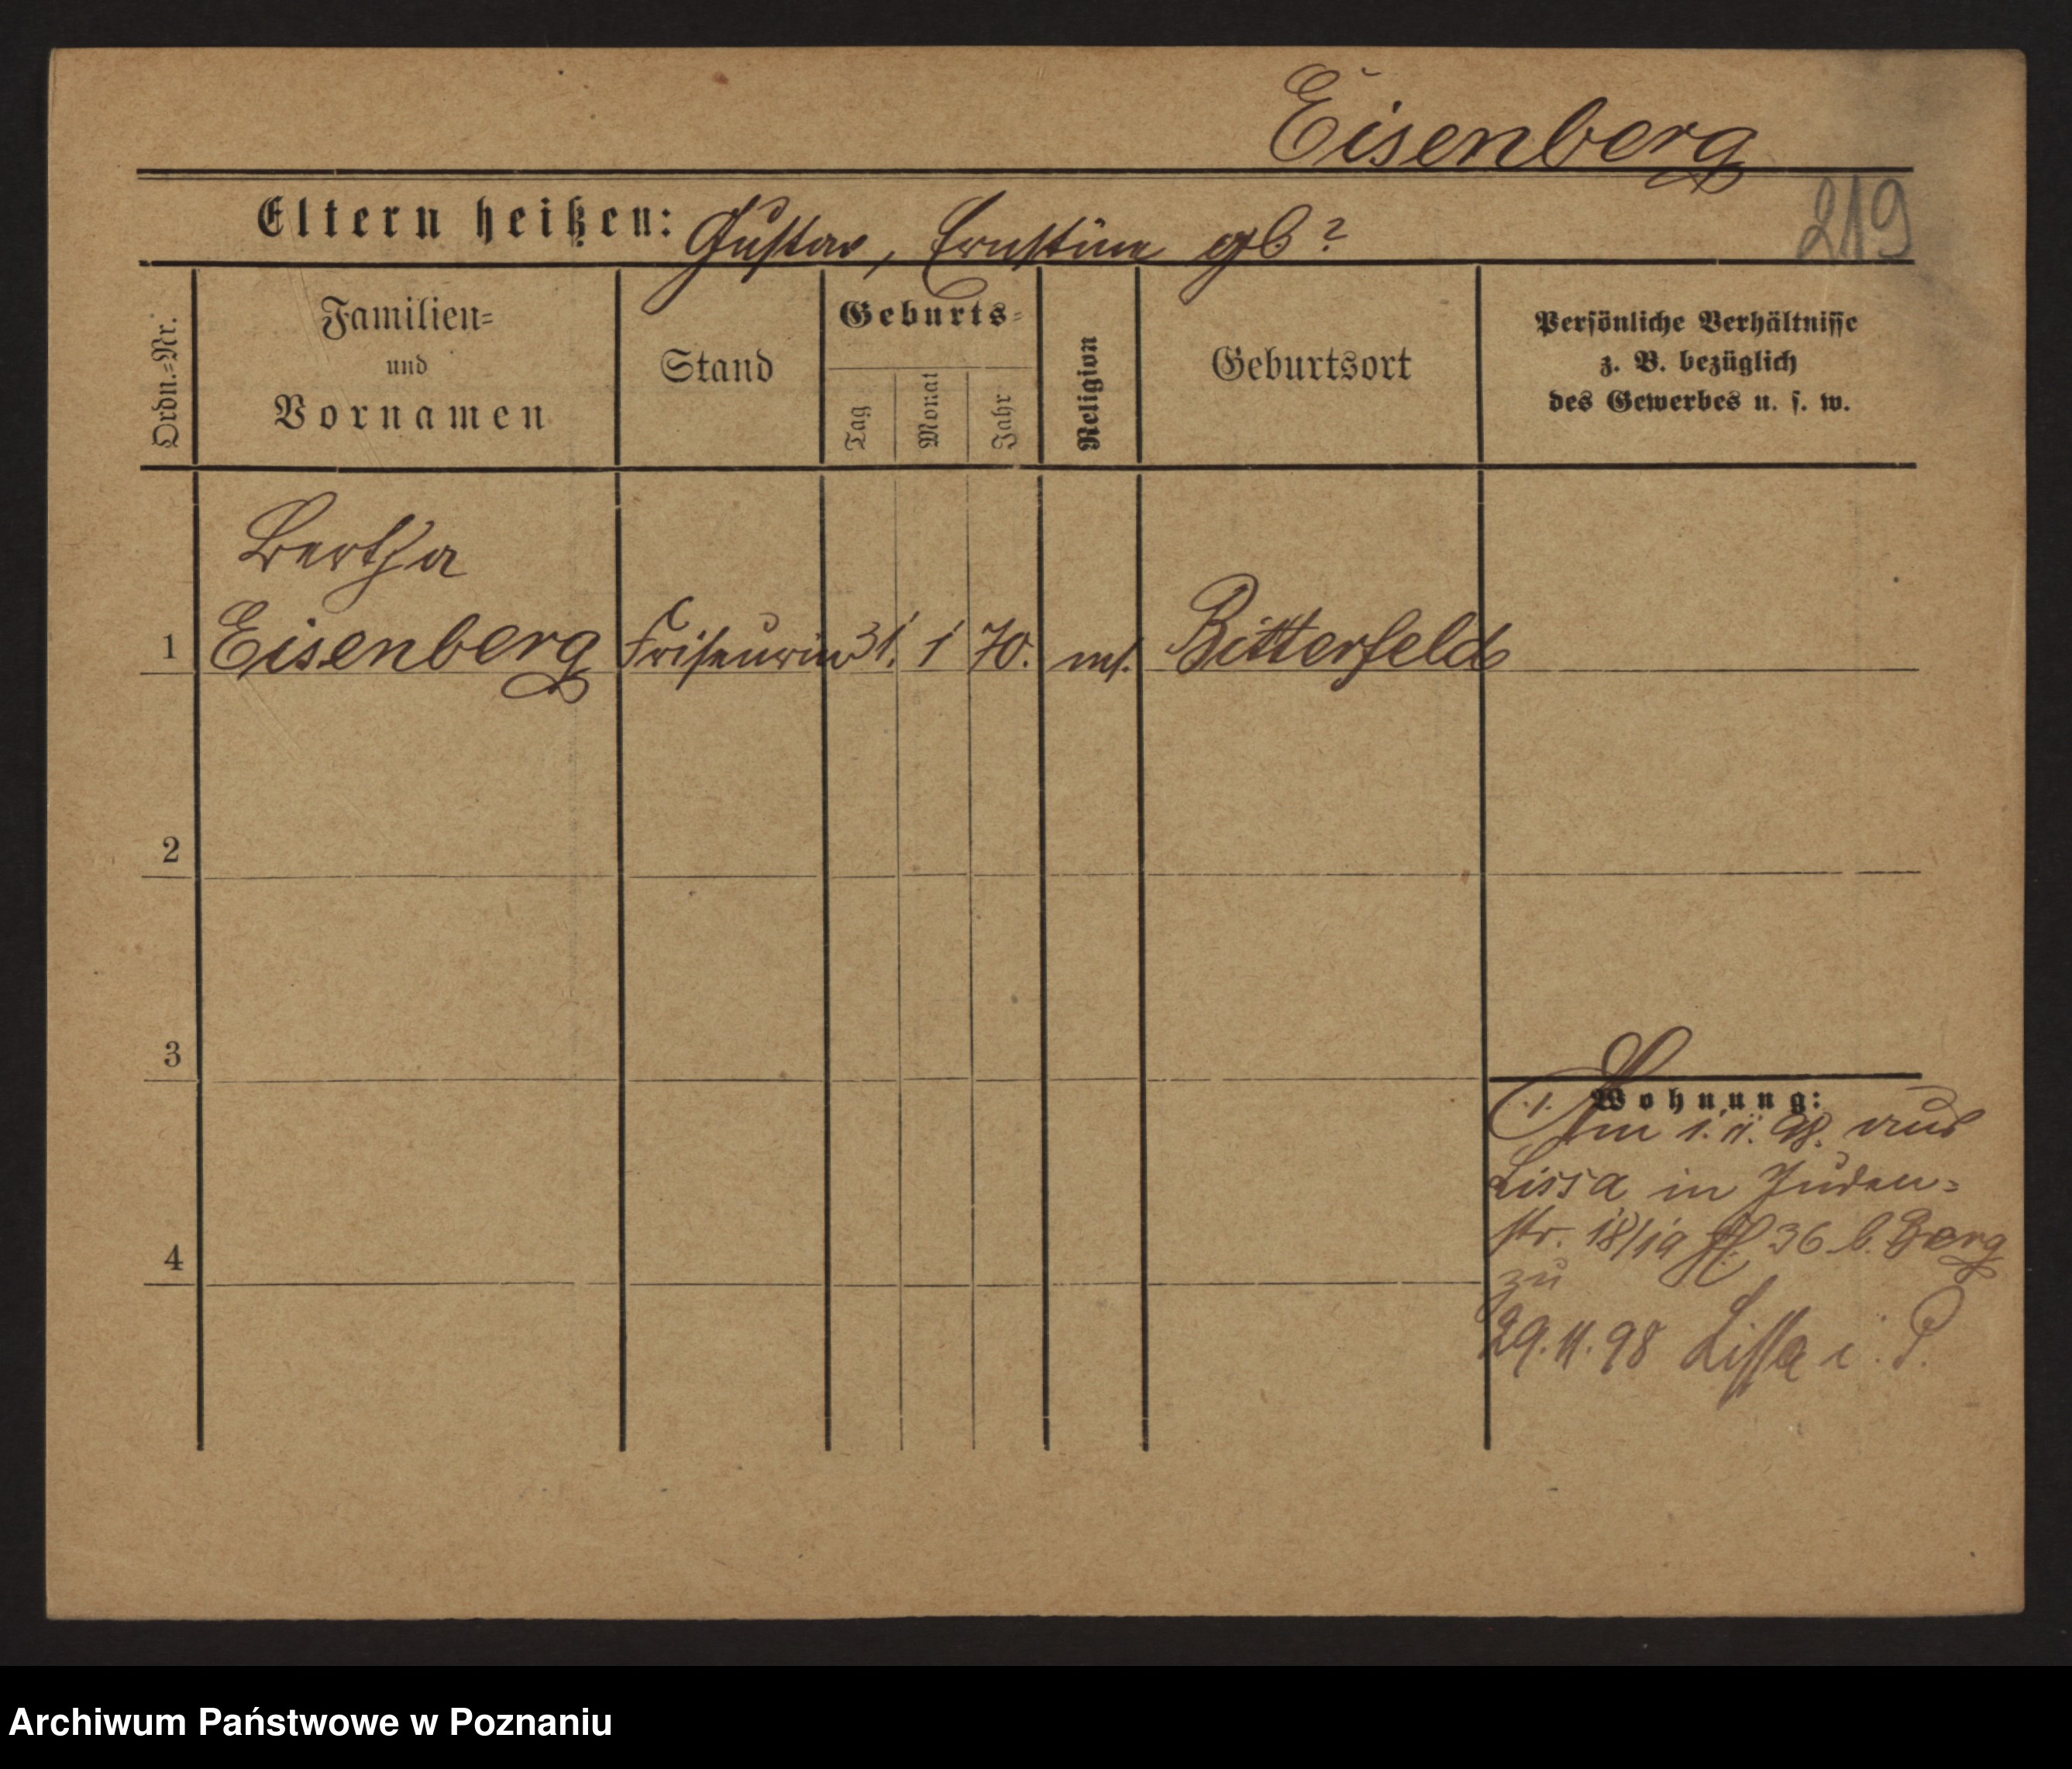 Eisenberg
219
Eltern heißen: Gustav, Ernstine gb?
Ordn.=Nr.
Familien=
und
Vornamen
Stand
Geburts=
Tag
Monat
Jahr
Religion
Geburtsort
Persönliche Verhältnisse
z. B. bezüglich
des Gewerbes u. s. w.
Bertha
1 Eisenberg Friseurin 31. 1 70. Bitterfeld
2
3
4
Wohnung:
Am 1. 11. 98. aus
Lissa in Juden=
str. 18/19 36 b. Berg
zu
29.11.98 Lissa i. P.
Archiwum Państwowe w Poznaniu